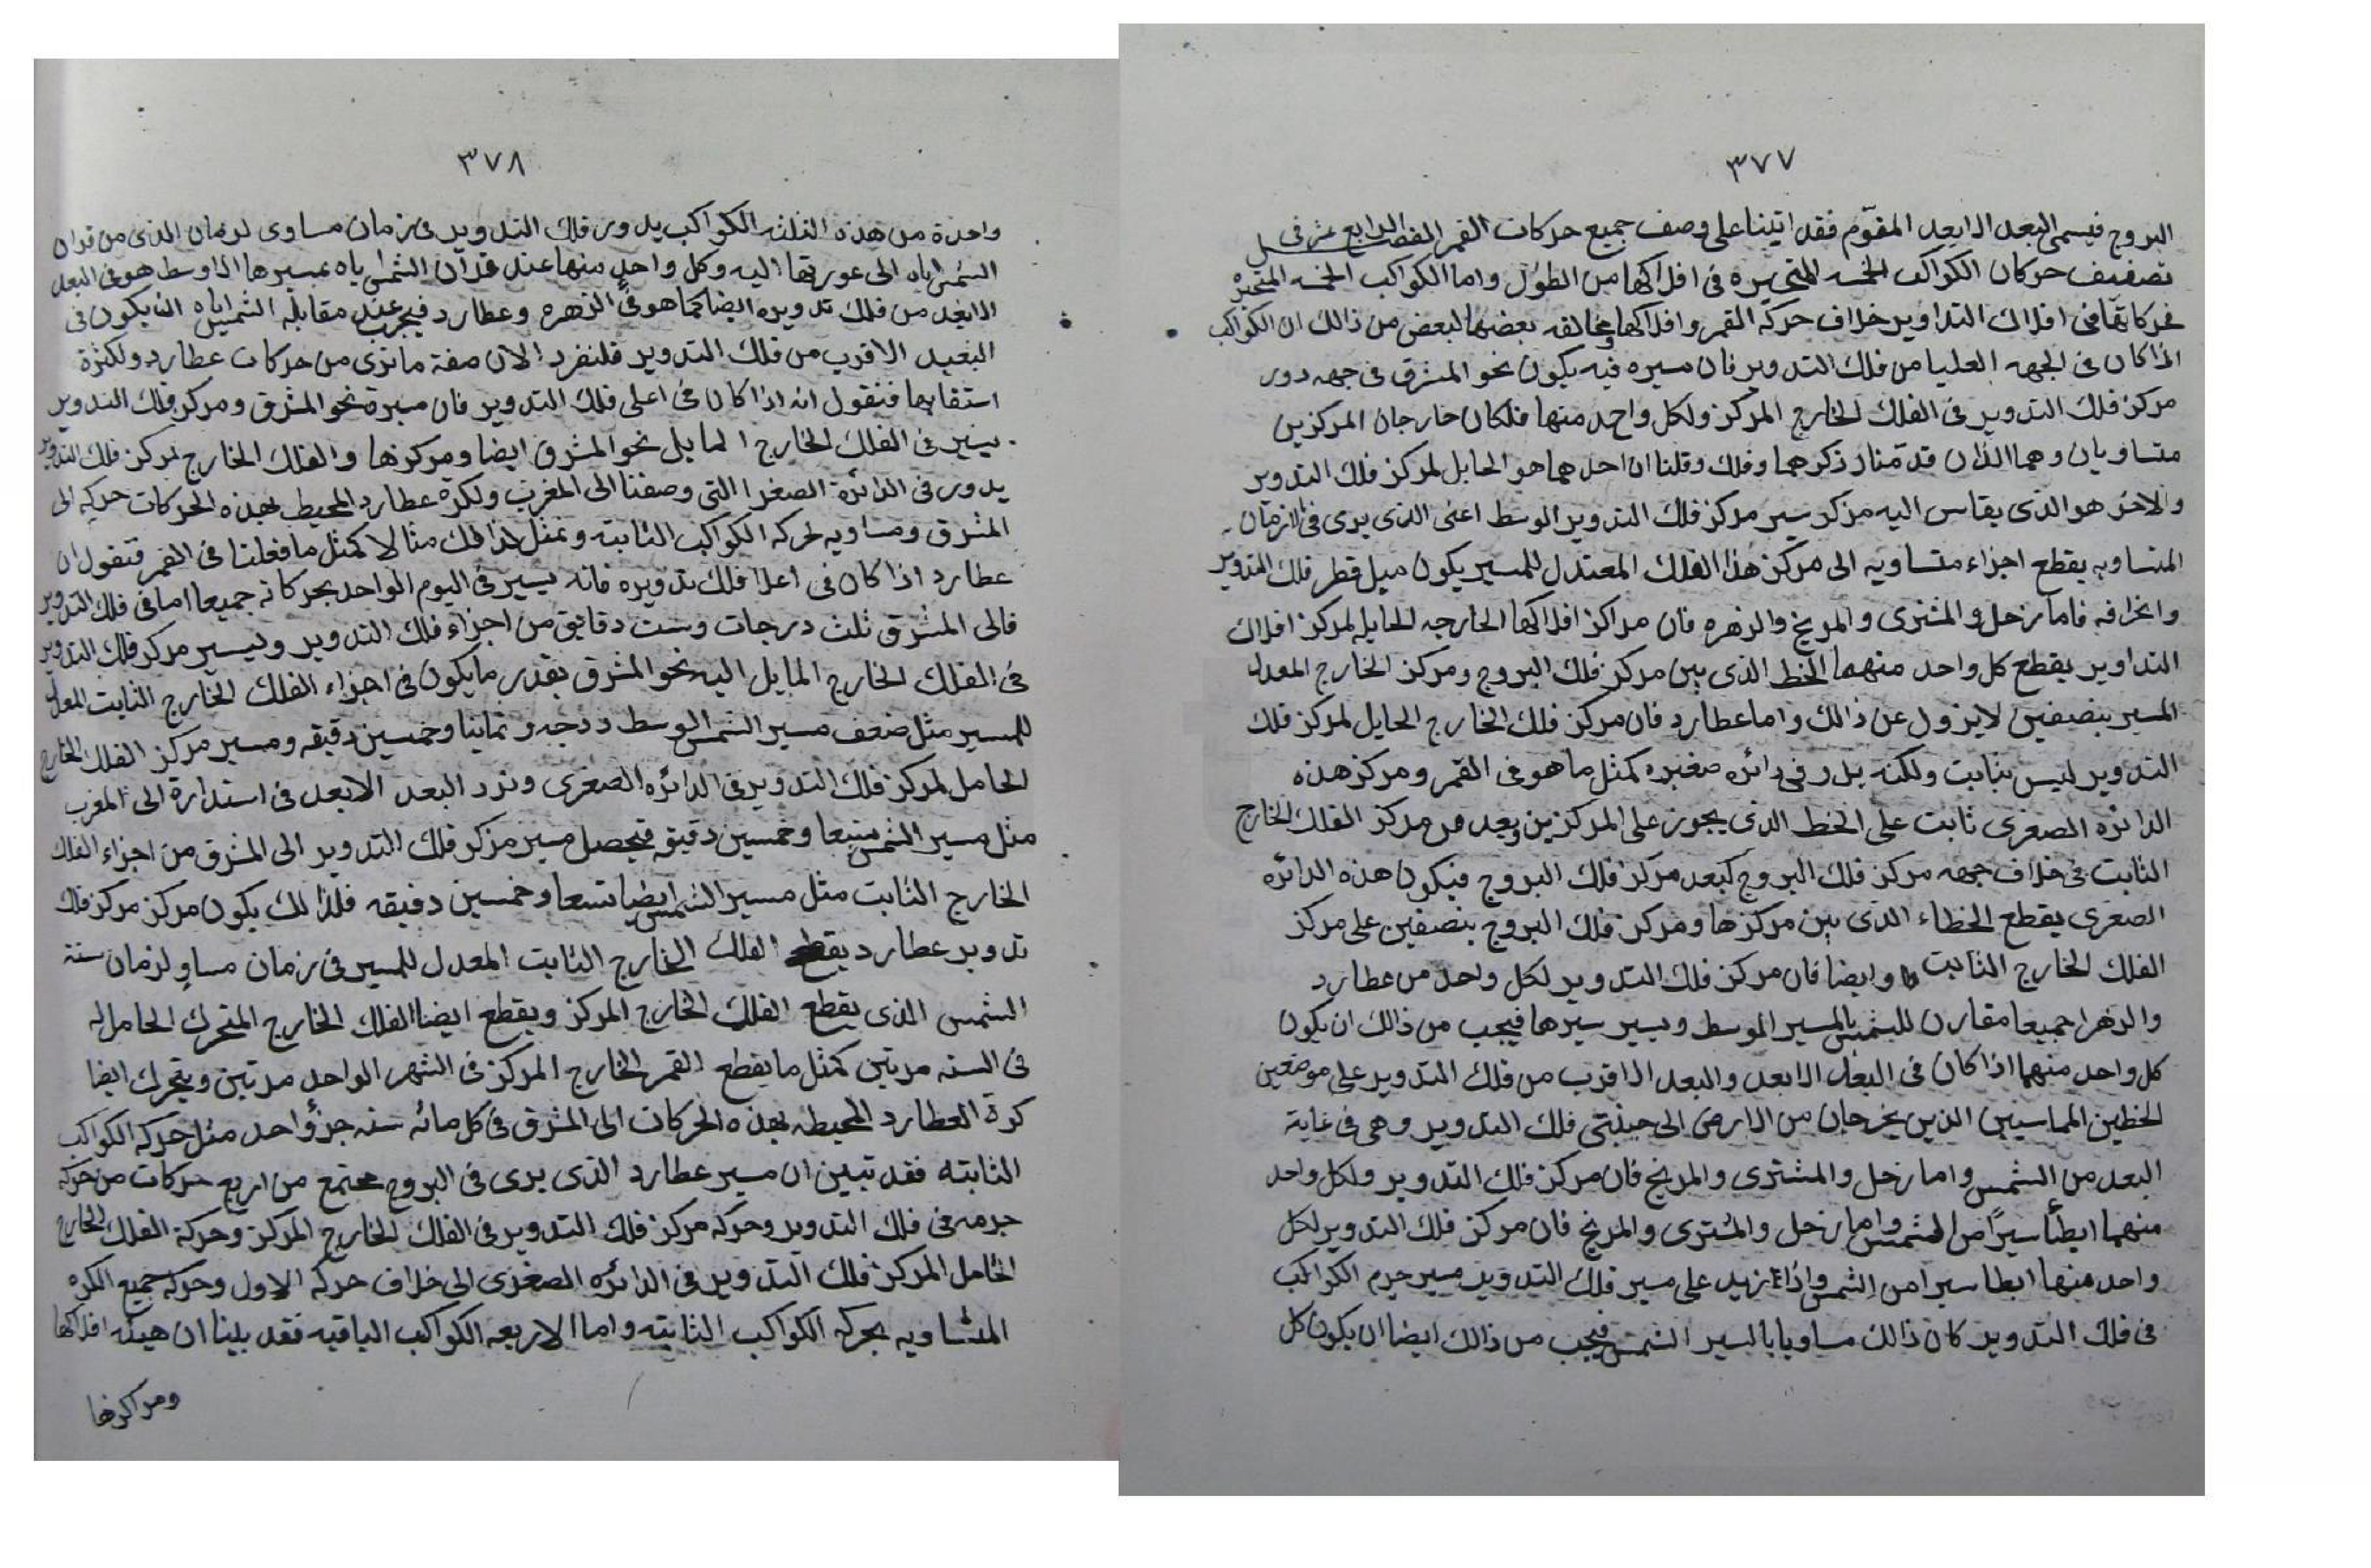 ٣٧٧
البروج فيسمى البعد الابعد المقوّم فقد اتينا على وصف جميع حركات القمر الفصل الرابع عشر في
تصفيف حركات الكواكب الخمسه المتحيره في افلاكها من الطول واما الكواكب الخمسه المتحيره
فحركاتها في افلاك التداوير خلاف حركه القمر وافلاكها مخالفه بعضها لبعض من ذالك ان الكواكب
اذا كان في الجهه العليا من فلك التدوير فان مسيره فيه يكون نحو المشرق في جهه دور
مركز فلك التدوير في الفلك الخارج المركز ولكل واحد منها فلكان خارجان المركزين
متساويان وهما اللذان قدمنا ذكرهما وفلك وقلنا ان احدهما هو الحامل لمركز فلك التدوير
والاخر هو الذى يقاس اليه مركز سير مركز فلك التدوير الوسط اعنى الذى يرى في الازمان
المتساويه يقطع اجزاء متساويه الى مركز هذا الفلك المعتدل للمسير يكون ميل قطر فلك التدوير
وانحرافه فاما زحل والمشترى والمريخ والزهره فان مراكز افلاكها الخارجه الحامله لمركز افلاك
التداوير يقطع كل واحد منهما الخط الذى بين مركز فلك البروج ومركز الخارج المعدل
المسير بنصفين لايزول عن ذالك واما عطارد فان مركز فلك الخارج الحايل لمركز فلك
التدوير ليس بثابت ولكنه يدور في دائره صغيره كمثل ما هو في القمر ومركز هذه
الدائره الصغرى ثابت على الخط الذى يجوز على المركزين وبعد من مركز الفلك الخارج
الثابت في خلاف جهه مركز فلك البروج كبعد مركز فلك البروج فيكون هذه الدائره
الصغرى يقطع الخطاء الذى بين مركزها ومركز فلك البروج بنصفين على مركز
الفلك الخارج الثابت وايضا فان مركز فلك التدوير لكل واحد من عطارد
والزهرا جميعا مقارن للشمس بالمسير الوسط ويسير سيرها فيجب من ذالك ان يكون
كل واحد منهما اذا كان في البعد الابعد والبعد الاقرب من فلك التدوير على موضعين
الخطين المماسين الذين يخرجان من الارض الى جنبتى فلك التدوير وهى في غاية
البعد من الشمس واما زحل والمشترى والمريخ فان مركز فلك التدوير ولكل واحد
منهما ابطأ سيرًا من الشمس واما زحل والمشترى والمريخ فان مركز فلك التدوير لكل
واحد منها ابطا سيرا من الشمس واذا زيد على مسير فلك التدوير مسير جرم الكواكب
في فلك التدوير كان ذالك مساويا بالسير الشمس فيجب من ذالك ايضا ان يكون كل
٣٧٨
واحدة من هذه الثلثه الكواكب يدور فلك التدوير في زمان مساوى لزمان الذى من قران
الشمس اياه الى عورتها اليه وكل واحد منها عند قران الشمس اياه بمسيرها الاوسط هو في البعد
الابعد من فلك تدويره ايضا كما هو في الزهره وعطارد فيجب عند مقابلة الشمس اياه ان يكون في
البعيد الاقرب من فلك التدوير فلنفرد الان صفة ما نرى من حركات عطارد ولكثرة
استقابها فنقول انه اذا كان في اعلى فلك التدوير فان مسيرة نحو المشرق ومركز فلك التدوير
يسير في الفلك الخارج المايل نحو المشرق ايضا ومركزها والفلك الخارج لمركز فلك التدوير
يدور في الدائرة الصغرا التى وصفنا الى المغرب ولكرة عطارد المحيط بهذه الحركات حركه الى
المشرق ومساويه لحركه الكواكب الثابته ونمثل لذالك مثالا كمثل ما فعلنا في القمر فنقول ان
عطارد اذا كان في اعلا فلك تدويره فانه يسير في اليوم الواحد بحركاته جميعا اما في فلك التدوير
فالى المشرق ثلث درجات وست دقايق من اجزاء فلك التدوير ويسير مركز فلك التدوير
في الفلك الخارج المايل اليه نحو المشرق بقدر ما يكون في اجزاء الفلك الخارج الثابت المعدل
للمسير مثل ضعف مسير الشمس الوسط درجه وثمانيا وخمسين دقيقه ومسير مركز الفلك الخارج
الحامل لمركز فلك التدوير في الدائره الصغرى ونرد البعد الابعد في استدارة الى المغرب
مثل مسير الشمس تسعا وخمسين دقيقه فيحصل مسير مركز فلك التدوير الى المشرق من اجزاء الفلك
الخارج الثابت مثل مسير الشمس ايضا تسعا وخمسين دقيقه فلذالك يكون مركز مركز فلك
تدوير عطارد يقطع الفلك الخارج الثابت المعدل للمسير في زمان مساو لزمان سنة
الشمس الذى يقطع الفلك الخارج المركز ويقطع ايضا الفلك الخارج المتحرك الحامل له
في السنه مرتين كمثل ما يقطع القمر الخارج المركز في الشهر الواحد مرتين ويتحرك ايضا
كرة العطارد المحيطه بهذه الحركات الى المشرق في كل مائه سنه جزؤ احد مثل حركه الكواكب
الثابته فقد تبين ان مسير عطارد الذى يرى في البروج مجتمع من اربع حركات من حركه
جرمه في فلك التدوير وحركه مركز فلك التدوير في الفلك الخارج المركز وحركة الفلك الخارج
الحامل المركز فلك التدوير في الدائره الصغرى الى خلاف حركه الاول وحركه جميع الكره
المشاويه بحركه الكواكب الثابته واما الاربعه الكواكب الباقيه فقد بينا ان هيئه افلاكها
ومراكزها